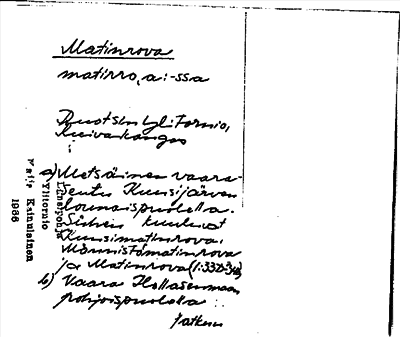 Matinrova
matinro, a: -ssa
Ruotsin Ylitornio,
Kuivakangas
a) Metsäinen vaara-
seutu Kuusijärven
lounaispuolella.
Siihen kuuluvat
Kuusimatinrova,
Männistömatinrova
ja Matinrova
b) Vaara Hollasenmaan
pohjoispuolella
jatkuu
Länsipohja
Ylitornio
Keinulainen
1986